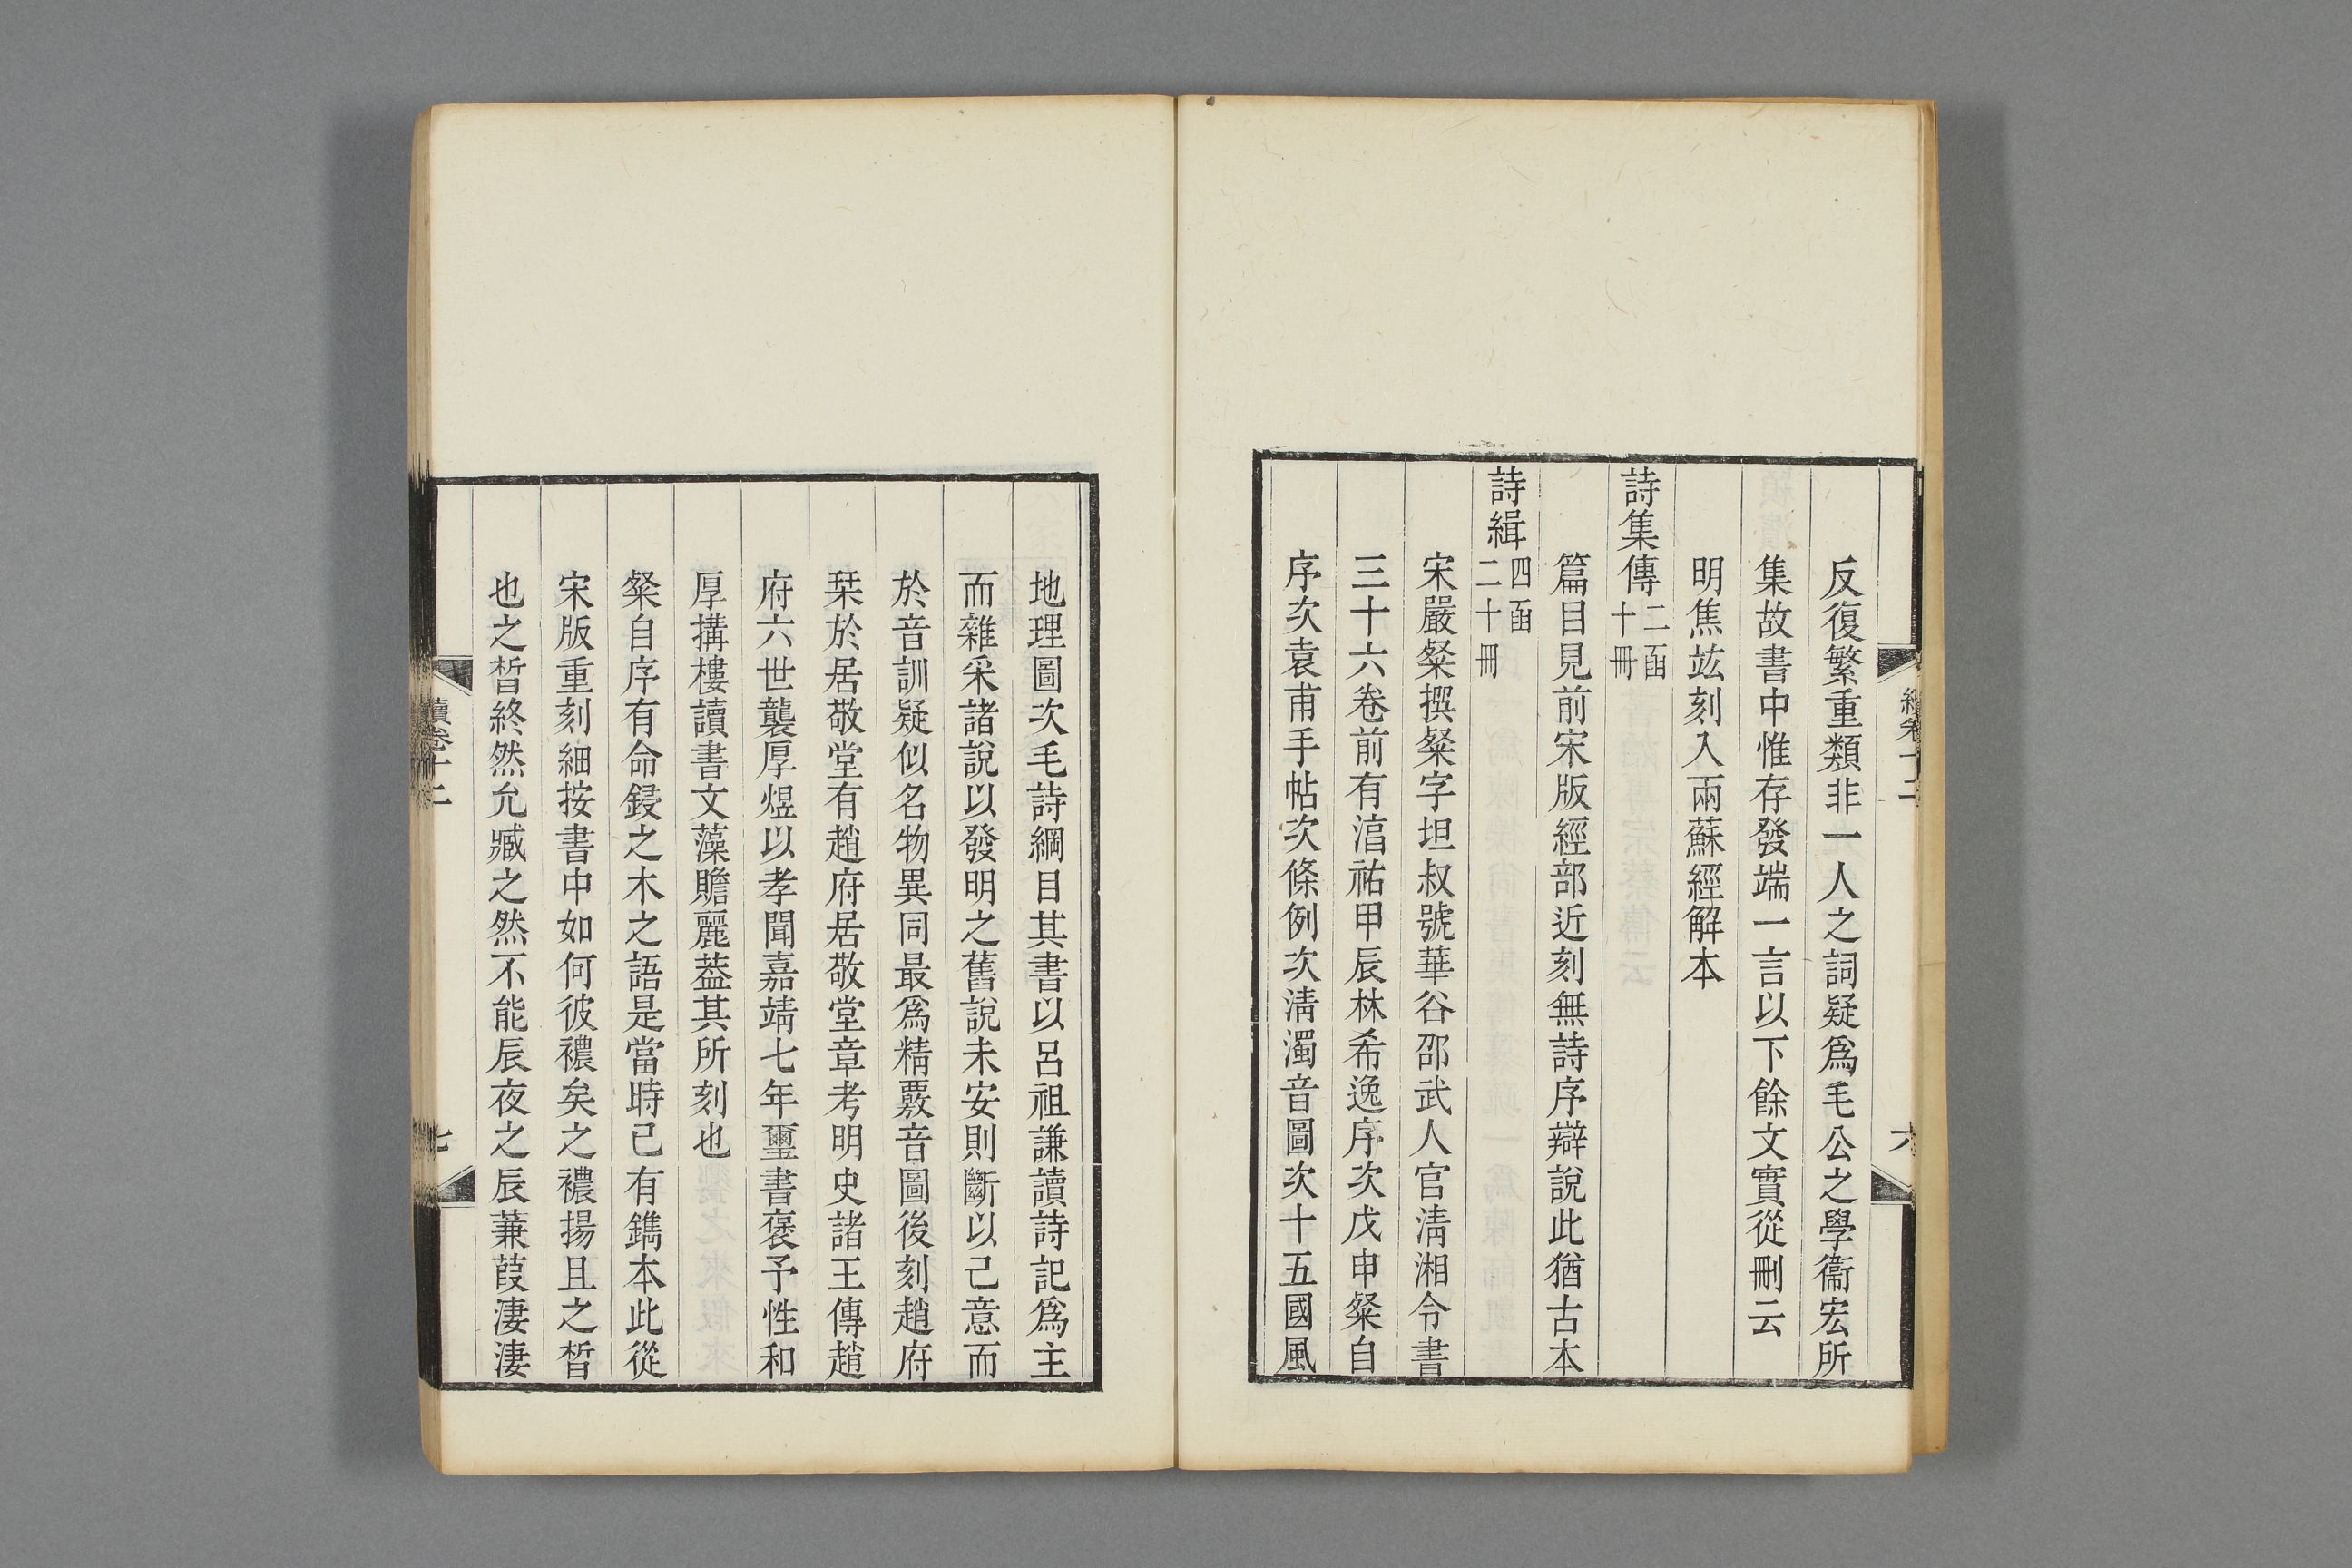 反復繁重類非一人之詞疑爲毛公之學衞宏所
集故書中惟存發端一言以下餘文實從刪云
明焦竑刻入兩蘇經解本
詩集傳二函十冊
篇目見前宋版經部近刻無詩序辯說此猶古本
詩緝四函二十冊
宋嚴粲撰粲字坦叔號華谷邵武人官淸湘令書
三十六卷前有湻祐甲辰林希逸序次戊申粲自
序次袁甫手帖次條例次淸濁音圖次十五國風
續卷十二
六
地理圖次毛詩綱目其書以呂祖謙讀詩記爲主
而雜采諸說以發明之舊說未安則斷以己意而
於音訓疑似名物異同最爲精覈音圖後刻趙府
栞於居敬堂有趙府居敬堂章考明史諸王傳趙
府六世襲厚煜以孝聞嘉靖七年璽書褒予性和
厚搆樓讀書文藻贍麗葢其所刻也
粲自序有命鋟之木之語是當時已有鐫本此從
宋版重刻細按書中如何彼襛矣之襛揚且之晳
也之晳終然允臧之然不能辰夜之辰蒹葭淒淒
續卷十二
七